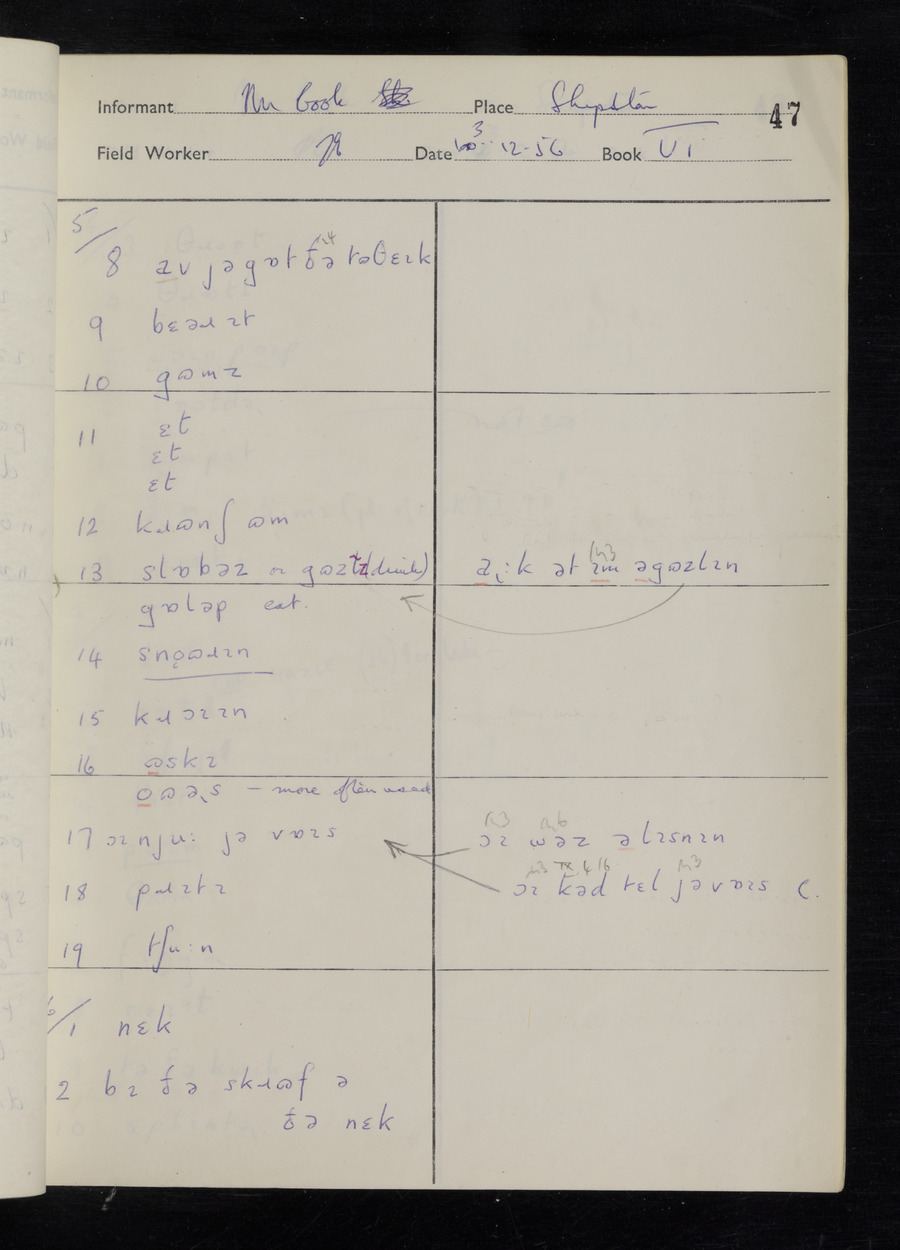 Informant Mr Cook Place Shipston 47
Field Worker Date 3 - 12-56 Book VI
5/
8 av jə gɒt ðə tʊθɛɪk
9 bɛəɹɪt
10 gʊmz
11 ɛt
ɛt
ɛt
12 kɹʊnʃ ʊm
13 slɒbəz or gʊzlz (drinks) ə̜ɪ:k ət ɪm əgʊzlɪn
gɒləp eat.
14 snọʊɹɪn
15 kɹɔɪɪn
16 ʊskɪ
oʊə̜s – more often used
17 ɔɪ nju: jə vɒɪs ɔɪ wəz əlɪsnɪn
18 pɹɪtɪ ɔɪ kəd tɛl jə vɒɪs C.
19 tʃu:n
6/
1 nɛk
2 bɪ ðə skɹʊf ə
ðə nɛk